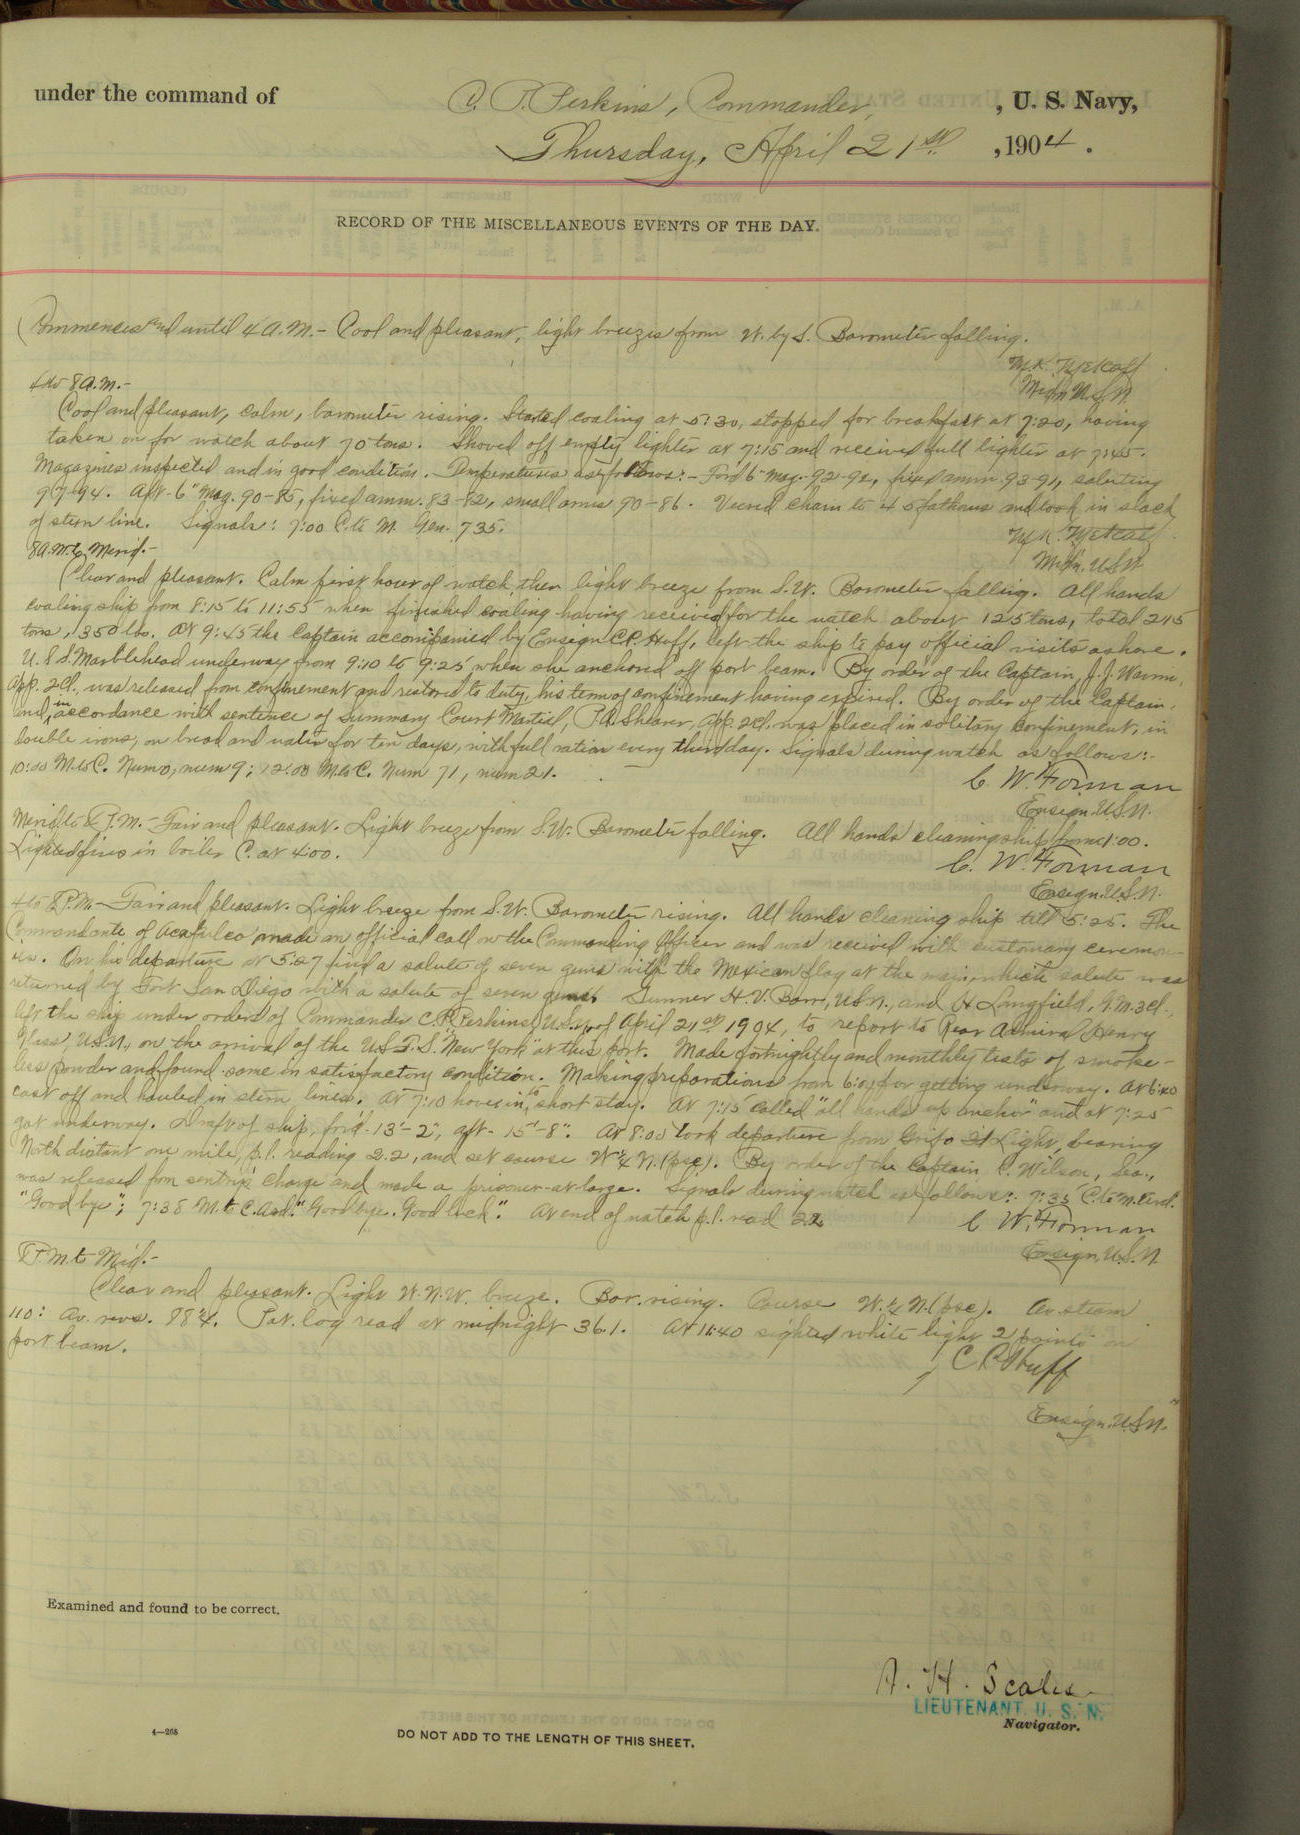 under the command of C. P. Perkins, Commander, , U. S. Navy,
Thursday, April 21st , 1904.
RECORD OF THE MISCELLANEOUS EVENTS OF THE DAY.
Commences and until 4 A.M.- Cool and pleasant, light breezes from W. by S. Barometer falling.
M.K. Metcalf
Midn U.S.N.
4 to 8 A.M.-
Cool and pleasant, calm, barometer rising. Started coaling at 5:30, stopped for breakfast at 7:20, having
taken on for watch about 70 tons. Shoved off empty lighter at 7:15 and received full lighter at 7:45.
Magazines inspected and in good condition. Temperatures as follows:- For'd 6" mag. 92-92, fixed amm. 93-91, saluting
97-94. Aft. 6" mag. 90-85, fixed amm. 83-82, small arms 90-86. Veered chain to 45 fathoms and took in slack
of stern line. Signals: 7:00 C. to M. Gen. 735.
M.K. Metcalf
Midn. U.S.N.
8 A.M. to Merid.-
Clear and pleasant. Calm first hour of watch, then light breeze from S.W. Barometer falling. All hands
coaling ship from 8:15 to 11:55 when finished coaling having received for the watch about 125 tons, total 215
tons, 350 lbs. At 9:45 the Captain accompanied by Ensign C.P. Huff, left the ship to pay official visits ashore.
U.S.S. Marblehead underway from 9:10 to 9:25 when she anchored off port beam. By order of the Captain, J.J.
App. 2cl., was released from confinement and restored to duty, his term of confinement having expired. By order of the Captain,
and, in accordance with sentence of Summary Court Martial, P.A. Shearer, App. 2cl. was placed in solitary confinement, in
double irons, on bread and water for ten days, with full ration every third day. Signals during watch as follows:-
10:00 M. to C. Num 0, num 9; 12:00 M. to C. Num 71, num 21.
C. W. Forman
Ensign, U.S.N.
Merid. to 4 P.M.- Fair and pleasant. Light breeze from S.W. Barometer falling. All hands cleaning ship from 1:00.
Lighted fires in boiler C. at 4:00.
C. W. Forman
Ensign. U.S.N.
4 to 8 P.M.- Fair and pleasant. Light breeze from S.W. Barometer rising. All hands cleaning ship till 5:25. The
Commandante of Acapulco made an official call on the Commanding Officer and was received with customary ceremon-
ies. On his departure at 5:27 fired a salute of seven guns with the Mexican flag at the main, which salute was
returned by Fort San Diego with a salute of seven guns. Gunner H.V. Barr, U.S.N., and H Langfield, G.M. 3cl.,
left the ship under orders of Commander C.P. Perkins, U.S.N., of April 21st 1904, to report to Rear Admiral Henry
Glass, U.S.N., on the arrival of the U.S.F.S. "New York" at this port. Made fortnightly and monthly tests of smoke-
less powder and found same in satisfactory condition. Making preparations from 6:00 for getting underway. At 6:40
cast off and hauled in stern lines. At 7:10 hove in to short stay. At 7:15 called "all hands up anchor" and at 7:25
got underway. Draft of ship, for'd-13'-2", aft- 15'-8". At 8:00 took departure from Grifo Id Light, bearing
North distant one mile, p.l. reading 2.2, and set course W ¼ N. (psc). By order of the Captain, C. Wilson, Sea.,
was released from sentry's charge and made a prisoner-at-large. Signals during watch as follows:- 7:35 C. to M. Ard.
"Good bye"; 7:38 M. to C. Ard. "Good bye. Good luck". At end of watch p.l. read 2.2.
C. W. Forman
Ensign, U.S.N.
8 P.M. to Mid.-
Clear and pleasant. Light W.N.W. breeze. Bar. rising. Course W. ¼ N. (psc). Av. steam
110: Av. revs. 88¼. Pat. log read at midnight 36.1. At 11:40 sighted white light 2 points on
port beam.
C P Huff
Ensign. U.S.N.
Examined and found to be correct.
A. H. Scales
LIEUTENANT U. S. N.
Navigator.
4—268
DO NOT ADD TO THE LENGTH OF THIS SHEET.